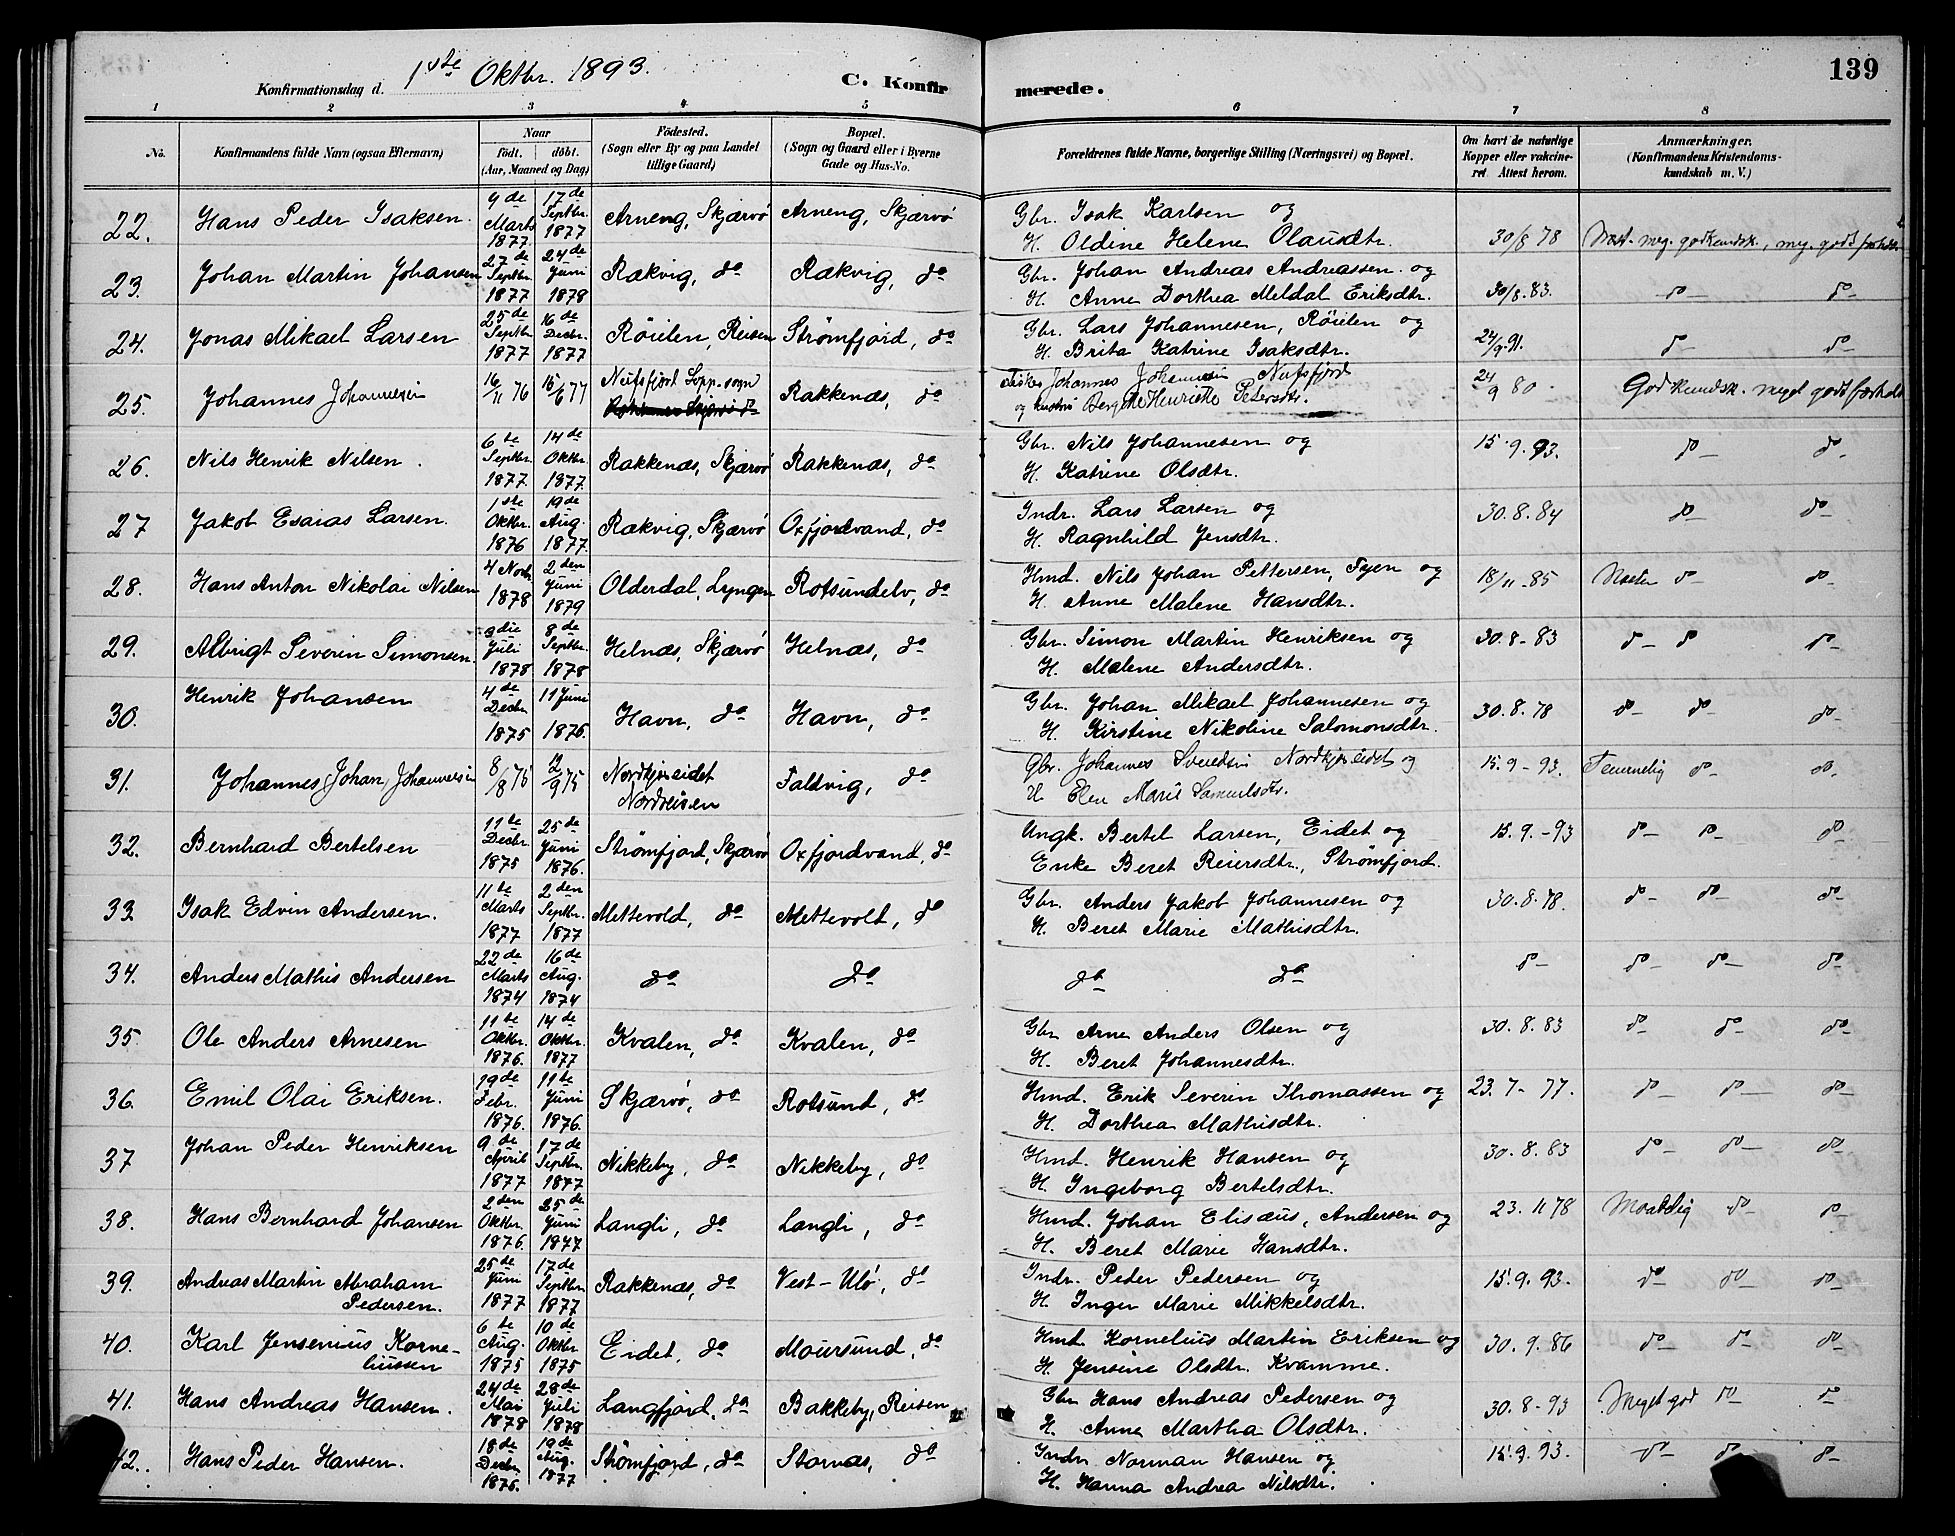 Konfirmationsdag d. 1ste Oktbr. 1893. C. Konfirmerede. 139
1 2 3 4 5 6 7 8
No. Konfirmandens fulde Navn (ogsaa Efternavn) Naar født. døbt. (Aar, Maaned og Dag) Fødested. (Sogn eller By og paa Landet tillige Gaard) Bopæl. (Sogn og Gaard eller i Byerne Gade og Hus-No. Forældrenes fulde Navne, borgerlige Stilling (Næringsvei) og Bopæl. Om havt de naturlige Kopper eller vakcineret. Attest herom. Anmærkninger. (Konfirmandens Kristendomskundskab m. V.)
22. Hans Peder Isaksen. 9de Marts 1877. 17de Septbr. 1877 Arneng, Skjærvö Arneng, Skjærvö Gbr. Isak Karlsen og H. Oldine Helene Olausdtr. 30/8 78 Næst. meg. god kundsk., meg. godt forhold
23. Johan Martin Johansen 27de Septbr. 1877 24de Juni 1878 Rakvig, do Rakvig, do Gbr. Johan Andreas Andreassen og H. Anne Dorthea Meldal Eriksdtr. 30/8.83. do do
24. Jonas Mikael Larsen 25de Septbr. 1877 16de Decbr. 1877 Röielen, Reisen Strömfjord, do Gbr. Lars Johannesen, Röielen og H. Brita Katrine Isaksdtr. 24/9.91. do do
25. Johannes Johannesen 16/11 76 15/6 77 Nufsfjord Lopp. sogn Rakkenæs, do Fisker Johannes Johannesen Nufsfjord og hustru Bergithe Henriette Pedersdtr. 24/9 80 God kundsk. meget godt forhold
26. Nils Henrik Nilsen. 6te Septbr. 1877. 14de Oktbr. 1877. Rakkenæs, Skjærvö Rakkenæs, do Gbr. Nils Johannesen og H. Katrine Olsdtr. 15.9.93. do do
27 Jakob Esaias Larsen. 1ste Oktbr. 1876 19de Aug. 1877. Rakvig, Skjærvö Oxfjordvand, do Indr. Lars Larsen og H. Ragnhild Jensdtr. 30.8.84 do do
28. Hans Anton Nikolai Nilsen 4 Novbr. 1878 2den Juni 1879 Olderdal, Lyngen Rotsundelv, do Hmd. Nils Johan Pettersen, Fyen og H. Anne Malene Hansdtr. 18/11-85 Næsten do do
29. Albrigt Severin Simonsen. 3die Juli 1878 8de Septbr. 1878 Helnæs, Skjærvö Helnæs, do Gbr. Simon Martin Henriksen og H. Malene Andersdtr. 30.8-83 do do do
30. Henrik Johansen 4de Decbr. 1875 11 Juni 1876. Havn, do Havn, do Gbr. Johan Mikael Johannesen og H. Kirstine Nikoline Salomonsdtr. 30.8.78 do do do
31. Johannes Johan Johannesen 8/8 75 12/9 75 Nordkjoseidet Nordreisen Taldvig, do Gbr. Johannes Svendsen Nordkjoseidet og H. Elen Marie Samuelsdtr. 15.9-93. Temmelig do do
32. Bernhard Bertelsen 11te Decbr. 1875 25de Juni 1876. Strömfjord, Skjærvö Oxfjordvand, do Ungk. Bertel Larsen, Eidet og Enke Beret Reiersdtr., Strömfjord. 15.9.-93 do do do
33. Isak Edvin Andersen. 11te Marts 1877 2den Septbr. 1877 Mettevold, do Mettevolt, do Gbr. Anders Jakob Johannesen og H. Beret Marie Mathisdtr. 30.8.78. do do do
34. Anders Mathis Andersen 22de Marts 1874 16de Aug. 1874 do do do do do do do do
35 Ole Anders Arnesen 11te Oktbr. 1876. 14de Oktbr. 1877 Kvalen, do Kvalen, do Gbr. Arne Anders Olsen og H. Beret Johannesdtr. 30.8.83 do do do
36. Emil Olai Eriksen. 19de Febr. 1876. 11te Juni 1876. Skjærvö, do Rotsund, do Hmd. Erik Severin Thomassen og H. Dorthea Mathisdtr. 23.7-77. do do do
37 Johan Peder Henriksen 9de April 1877 17de Septbr. 1877 Nikkeby, do Nikkeby, do Hmd. Henrik Hansen og H. Ingeborg Bertelsdtr. 30.8.83 do do do
38. Hans Bernhard Johansen 2den Oktbr. 1876. 25de Juni 1877 Langli, do Langli, do Hmd. Johan Elisæus, Andersen og H. Beret Marie Hansdtr. 23.11 78 Maadelig do do
39. Andreas Martin Abraham Pedersen. 25de Juni 1877 17de Septbr. 1877 Rakkenæs, do Vest-Ulö, do Indr. Peder Pedersen og H. Inger Marie Mikkelsdtr. 15.9.93. do do do
40. Karl Jensenius Korneliussen 6te Aug. 1875 10de Oktbr 1875 Eidet, do Maursund, do Hmd. Kornelius Martin Eriksen og H. Jensine Olsdtr. Kvamme. 30.9.86 do do do
41. Hans Andreas Hansen. 24de Mai 1878 28de Juli 1878 Langfjord, do Bakkeby, Reisen Gbr. Hans Andreas Pedersen og H. Anne Martha Olsdtr. 30.8-93 Meget god do do
42. Hans Peder Hansen. 18de Decbr. 1876. 19de Aug. 1877 Strömfjord, do Stornæs, do Indr. Norman Hansen og H. Hanna Andrea Nilsdtr. 15.9.93. do do do